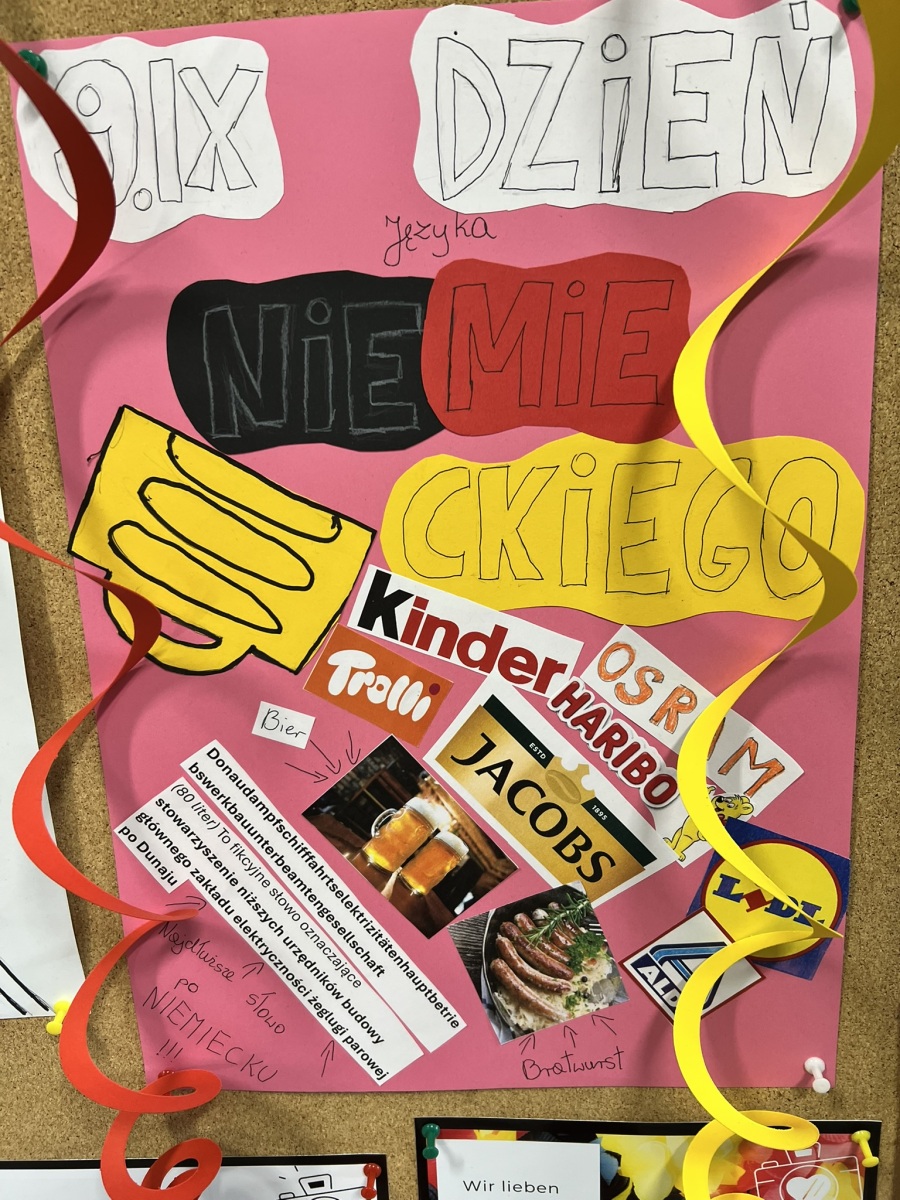 9.IX DZiEŃ
Języka
NiEMiE
CKiEGO
Kinder
OSRAM
Trolli
HARIBO
Bier
ESTD 1895
JACOBS
LIDL
ALDI
Donaudampfschifffahrtselektrizitätenhauptbetrie
bswerkbauunterbeamtengesellschaft
(80 liter) To fikcyjne słowo oznaczające
stowarzyszenie niższych urzędników budowy
głównego zakładu elektryczności żeglugi parowej
po Dunaju
Najdłuższe słowo
po
NIEMIECKU
!!!
Bratwurst
Wir lieben